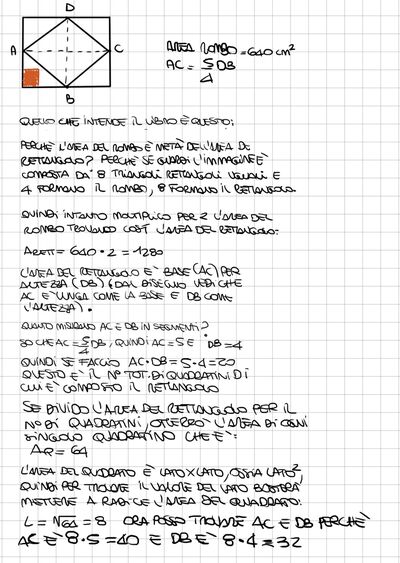 D
A
C
B
AREA ROMBO = 640 cm²
AC = 5/4 DB
QUELLO CHE INTENDE IL LIBRO È QUESTO:
PERCHÈ L'AREA DEL ROMBO È METÀ DELL'AREA DEL
RETTANGOLO? PERCHÈ SE GUARDI L'IMMAGINE È
COMPOSTA DA 8 TRIANGOLI RETTANGOLI UGUALI E
4 FORMANO IL ROMBO, 8 FORMANO IL RETTANGOLO.
QUINDI INTANTO MOLTIPLICO PER 2 L'AREA DEL
ROMBO TROVANDO COSÌ L'AREA DEL RETTANGOLO:
ARETT = 640 · 2 = 1280
L'AREA DEL RETTANGOLO È BASE (AC) PER
ALTEZZA (DB) (DAL DISEGNO VEDI CHE
AC È LUNGA COME LA BASE E DB COME
L'ALTEZZA).
QUANTO MISURANO AC E DB IN SEGMENTI?
SO CHE AC = 5/4 DB, QUINDI AC = 5 E DB = 4
QUINDI SE FACCIO AC · DB = 5 · 4 = 20
QUESTO È IL N° TOT. DI QUADRATINI DI
CUI È COMPOSTO IL RETTANGOLO
SE DIVIDO L'AREA DEL RETTANGOLO PER IL
N° DI QUADRATINI, OTTERRÒ L'AREA DI OGNI
SINGOLO QUADRATINO CHE È:
AQ = 64
L'AREA DEL QUADRATO È LATO X LATO, OSSIA LATO²,
QUINDI PER TROVARE IL VALORE DEL LATO BASTERÀ
METTERE A RADICE L'AREA DEL QUADRATO:
L = √64 = 8 ORA POSSO TROVARE AC E DB PERCHÈ
AC È 8 · 5 = 40 E DB È 8 · 4 = 32